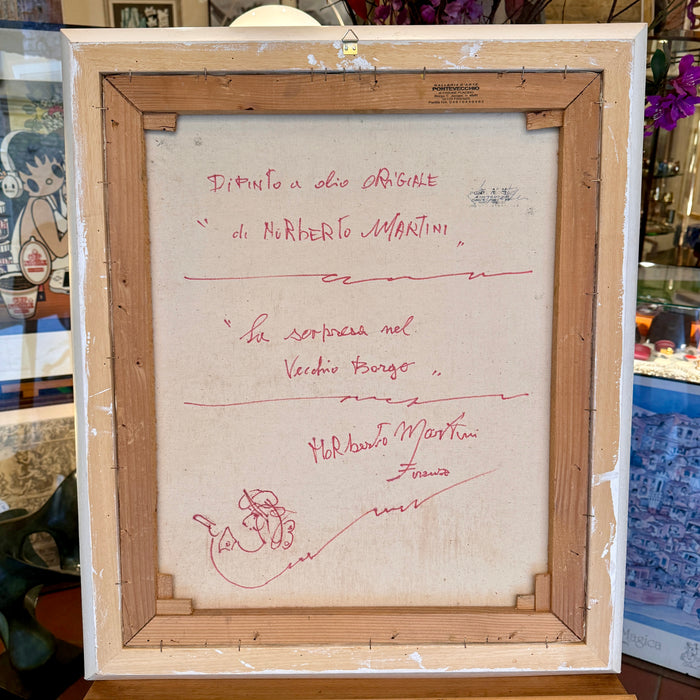 GALLERIA D'ARTE
PONTEVECCHIO
Dipinto a olio ORIGIALE
" di NORBERTO MARTINI "
" La sorpresa nel
Vecchio Borgo "
Norberto Martini
Firenze
Magica